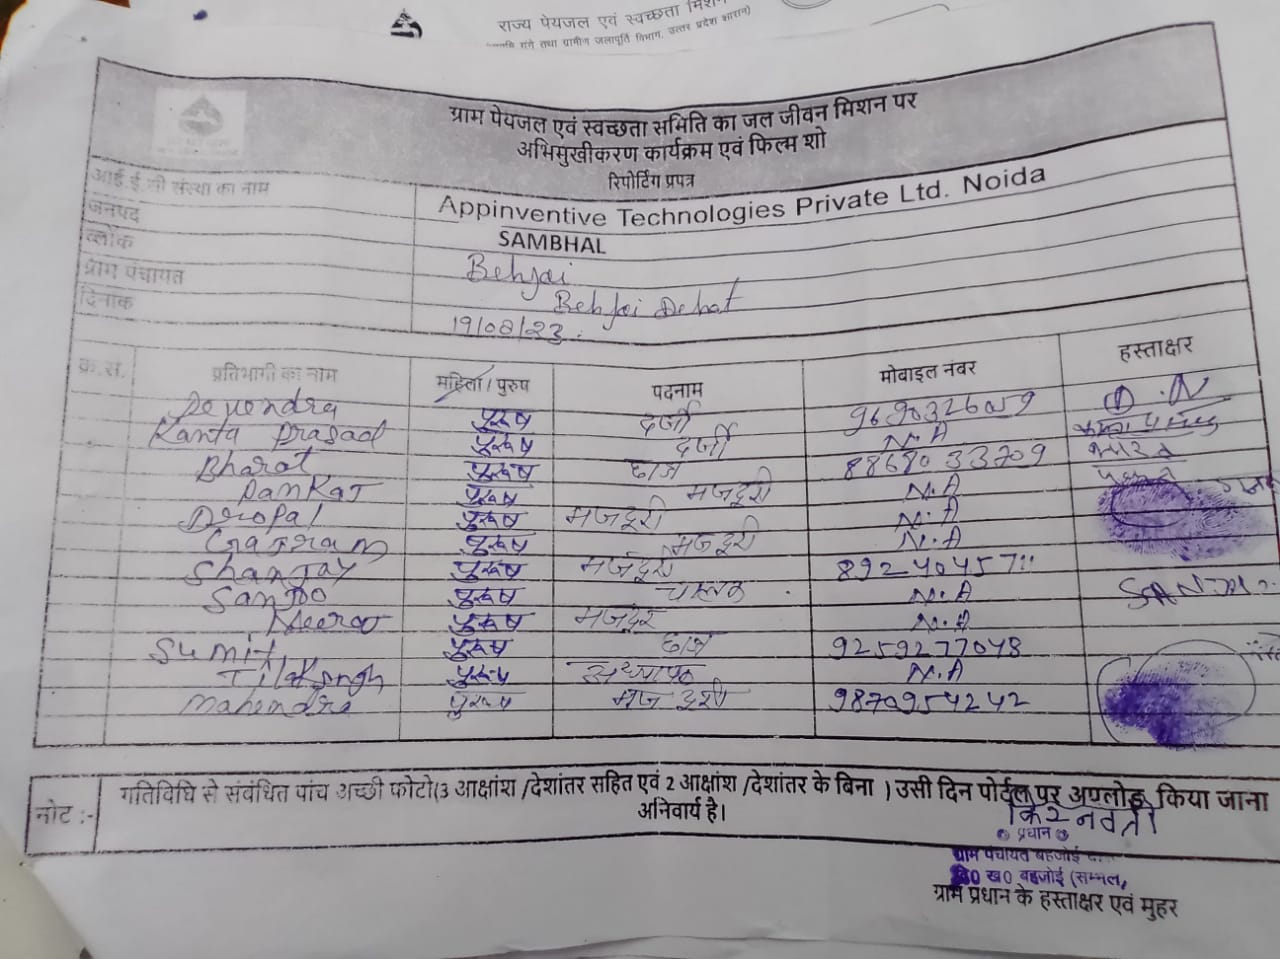 राज्य पेयजल एवं स्वच्छता मिशन
तथा ग्रामीण जलापूर्ति विभाग, उत्तर प्रदेश शासन)
ग्राम पेयजल एवं स्वच्छता समिति का जल जीवन मिशन पर
अभिमुखीकरण कार्यक्रम एवं फिल्म शो
रिपोर्टिंग प्रपत्र
आई.ई.सी संस्था का नाम Appinventive Technologies Private Ltd. Noida
जनपद SAMBHAL
ब्लॉक Behjoi
ग्राम पंचायत Behjoi Dehat
दिनांक 19/08/23
क्र.सं. प्रतिभागी का नाम महिला/पुरुष पदनाम मोबाइल नंबर हस्ताक्षर
पुरुष दर्जी 9690326059 D.N
Kanta Prasad पुरुष दर्जी N.A
Bharat पुरुष छात्र 8868033709
Pankaj पुरुष मजदूरी N.A
पुरुष मजदूरी N.A
Gajram पुरुष मजदूरी N.A
Shanjay पुरुष मजदूरी
Sanjoo पुरुष चालक N.A
Neerav पुरुष मजदूर N.A
Sumit पुरुष छात्र 9259277048
पुरुष अध्यापक N.A
Mahendra पुरुष मजदूरी 9870954242
नोट :- गतिविधि से संबंधित पांच अच्छी फोटो(3 आक्षांश /देशांतर सहित एवं 2 आक्षांश /देशांतर के बिना ) उसी दिन पोर्टल पर अपलोड किया जाना
अनिवार्य है।
प्रधान
ग्राम पंचायत बहजोई
ख0 बहजोई (सम्भल)
ग्राम प्रधान के हस्ताक्षर एवं मुहर